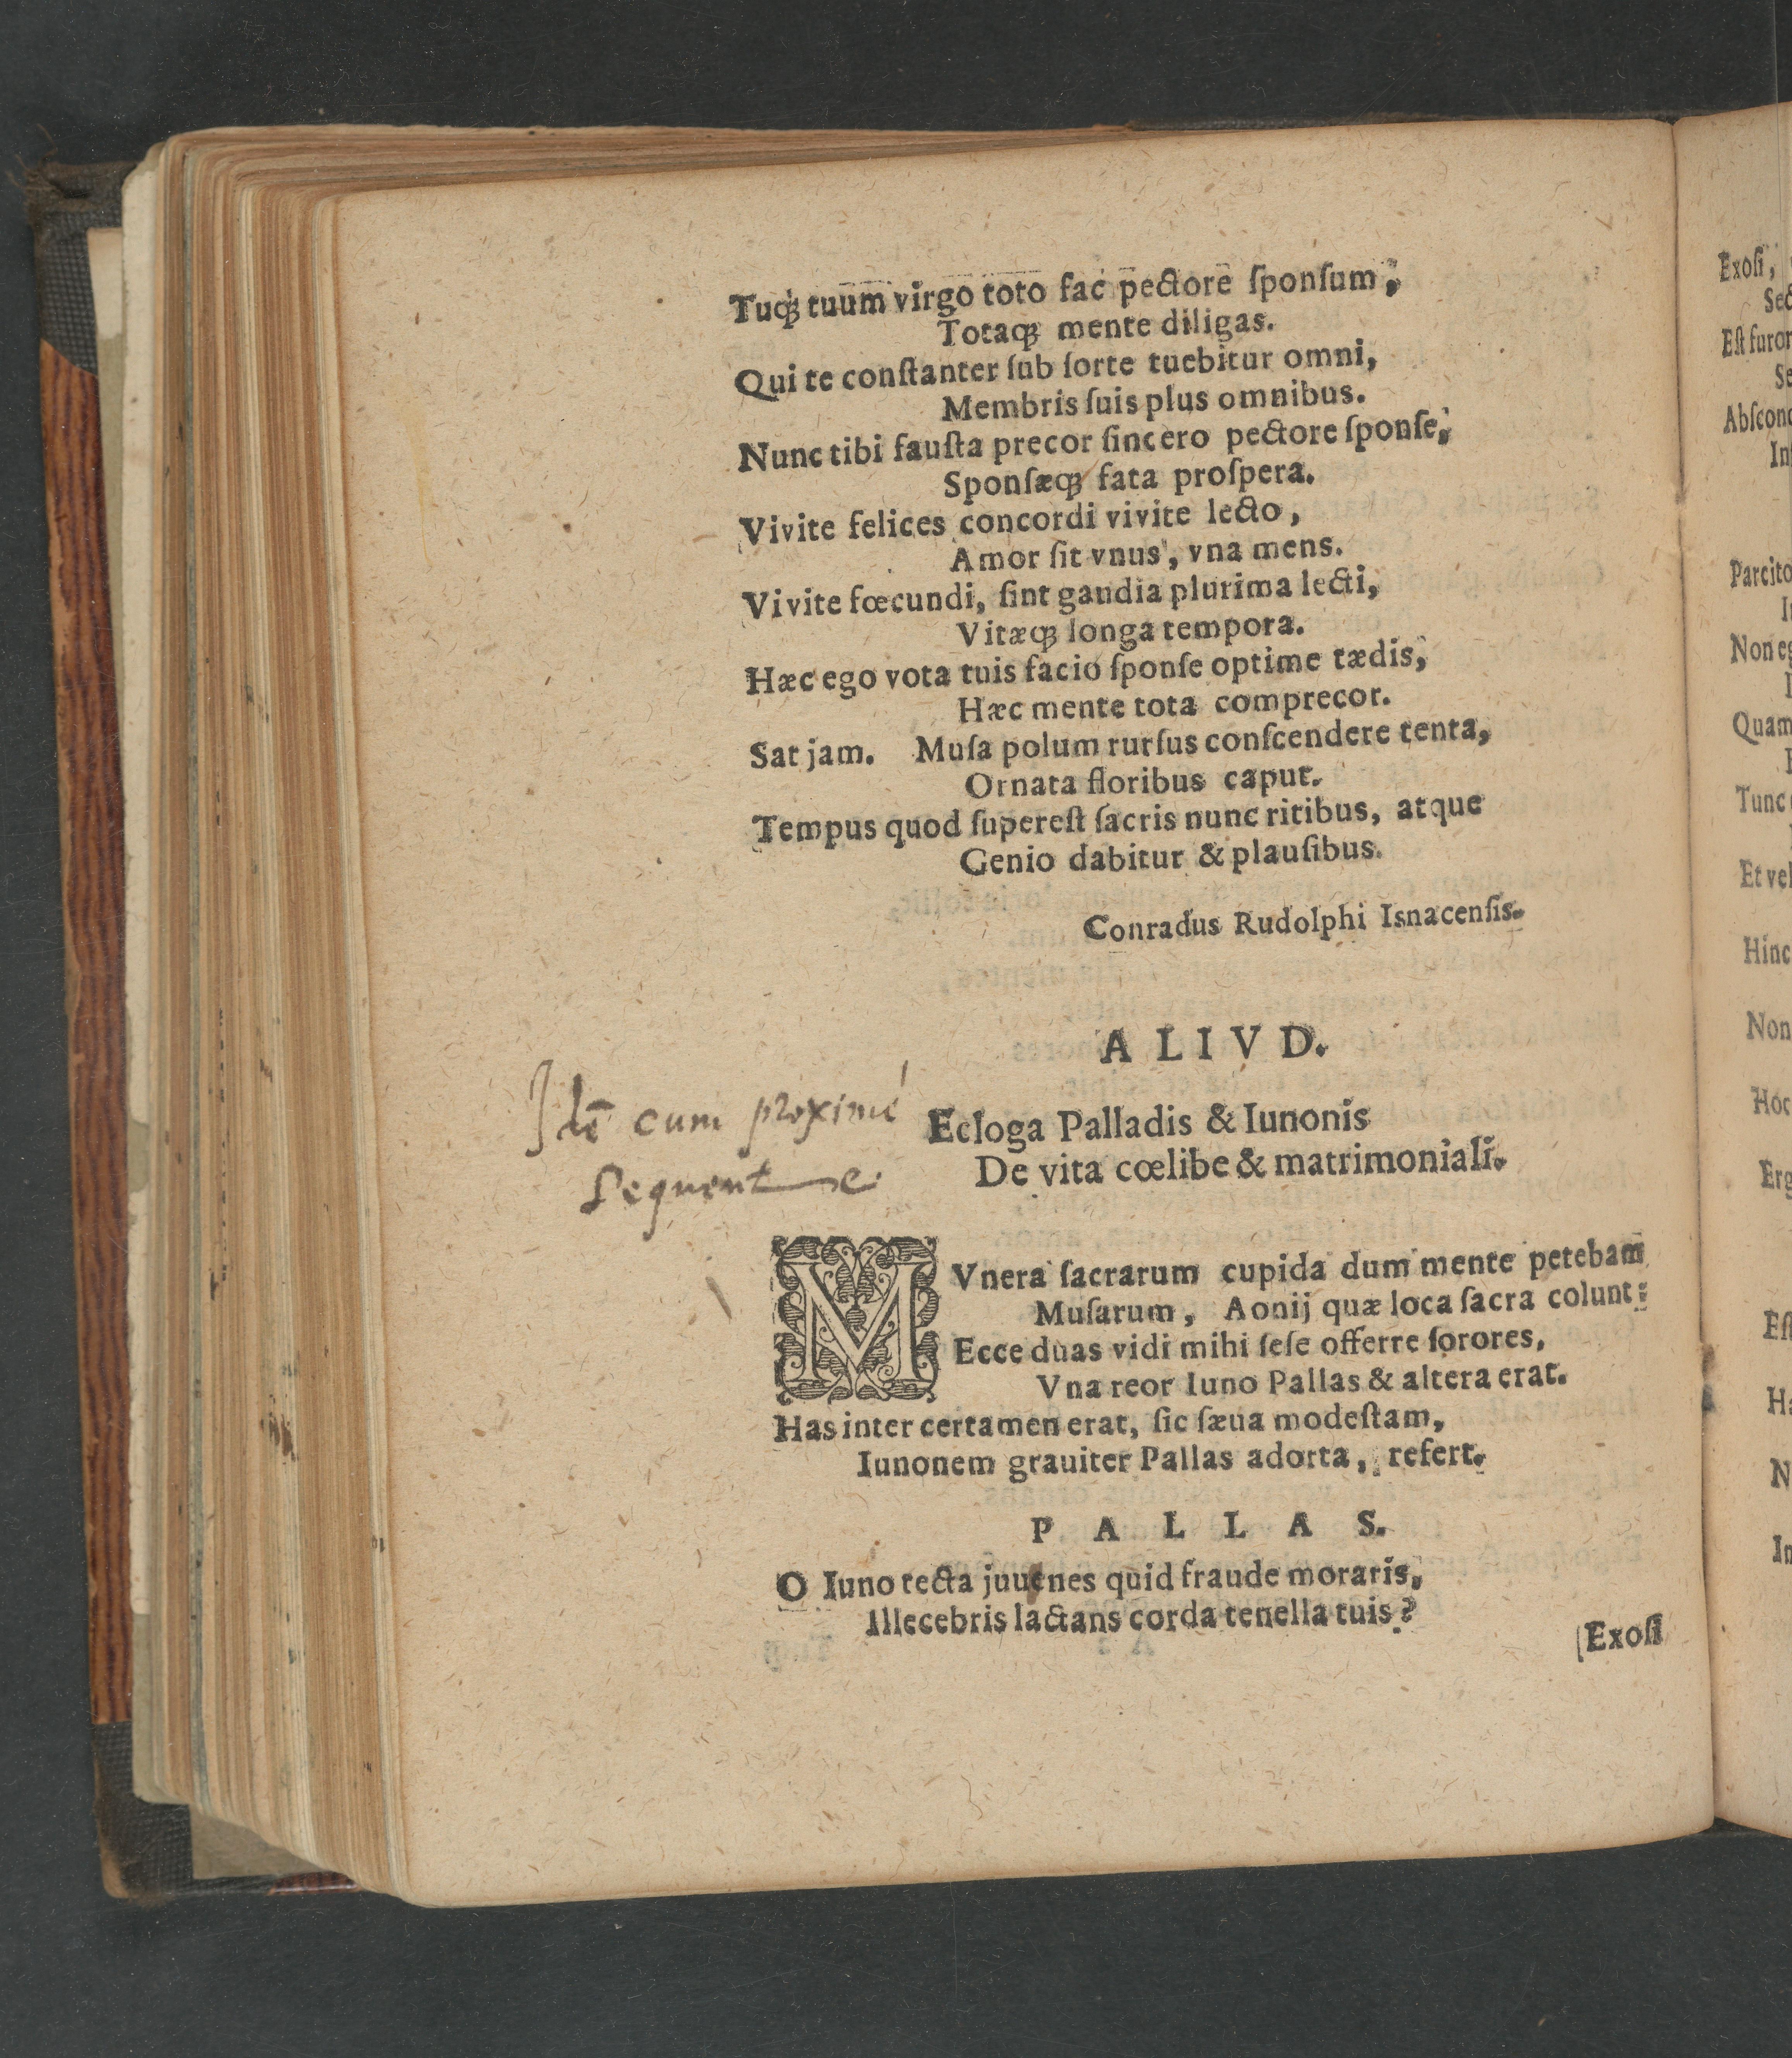 Tuqꝫ tuum virgo toto fac pectore ſponſum,
Totaqꝫ mente diligas.
Qui te conſtanter ſub ſorte tuebitur omni,
Membris ſuis plus omnibus.
Nunc tibi fauſta precor ſincero pectore ſponſe,
Sponſæqꝫ fata proſpera.
Vivite felices concordi vivite lecto,
Amor ſit vnus, vna mens.
Vivite fœcundi, ſint gaudia plurima lecti,
Vitæqꝫ longa tempora.
Hæc ego vota tuis facio ſponſe optime tædis,
Hæc mente tota comprecor.
Sat jam. Muſa polum rurſus conſcendere tenta,
Ornata floribus caput.
Tempus quod ſupereſt ſacris nunc ritibus, atque
Genio dabitur & plauſibus.
Conradus Rudolphi Isnacenſis.
ALIVD.
Idē cum proximé
sequente.
Ecloga Palladis & Iunonis
De vita cœlibe & matrimoniali.
MVnera ſacrarum cupida dum mente petebam
Muſarum, Aonij quæ loca ſacra colunt:
Ecce duas vidi mihi ſeſe offerre ſorores,
Vna reor Iuno Pallas & altera erat.
Has inter certamen erat, ſic ſæua modeſtam,
Iunonem grauiter Pallas adorta, refert.
PALLAS.
O Iuno tecta juuenes quid fraude moraris,
Illecebris lactans corda tenella tuis?
Exoſi
Exoſi,
Eſt furor
Parcito
Quam
Tunc
Et vel
Hinc
Non
Hoc
Erg